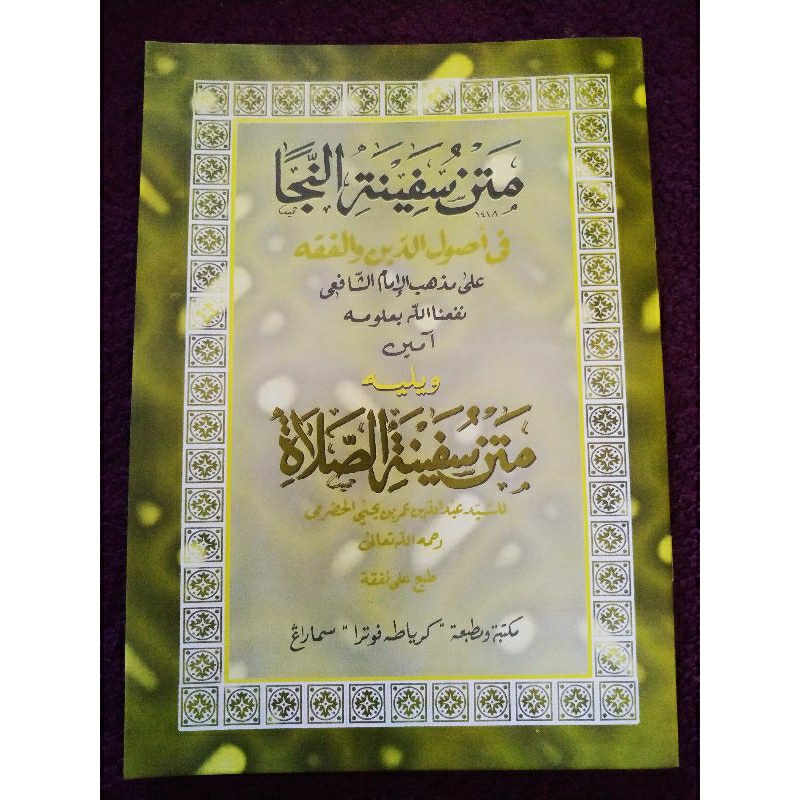 مَتن سَفِينَةِ النَّجَا
١٤١٨
فى أصول الدين والفقه
على مذهب الإمام الشافعى
نفعنا الله بعلومه
آمين
ويليه
مَتن سَفِينَةِ الصَّلَاةِ
للسيد عبدالله بن عمر بن يحيى الحضرمى
رحمه الله تعالى
طبع على نفقة
مكتبة ومطبعة "كرياطه فوترا" سماراڠ